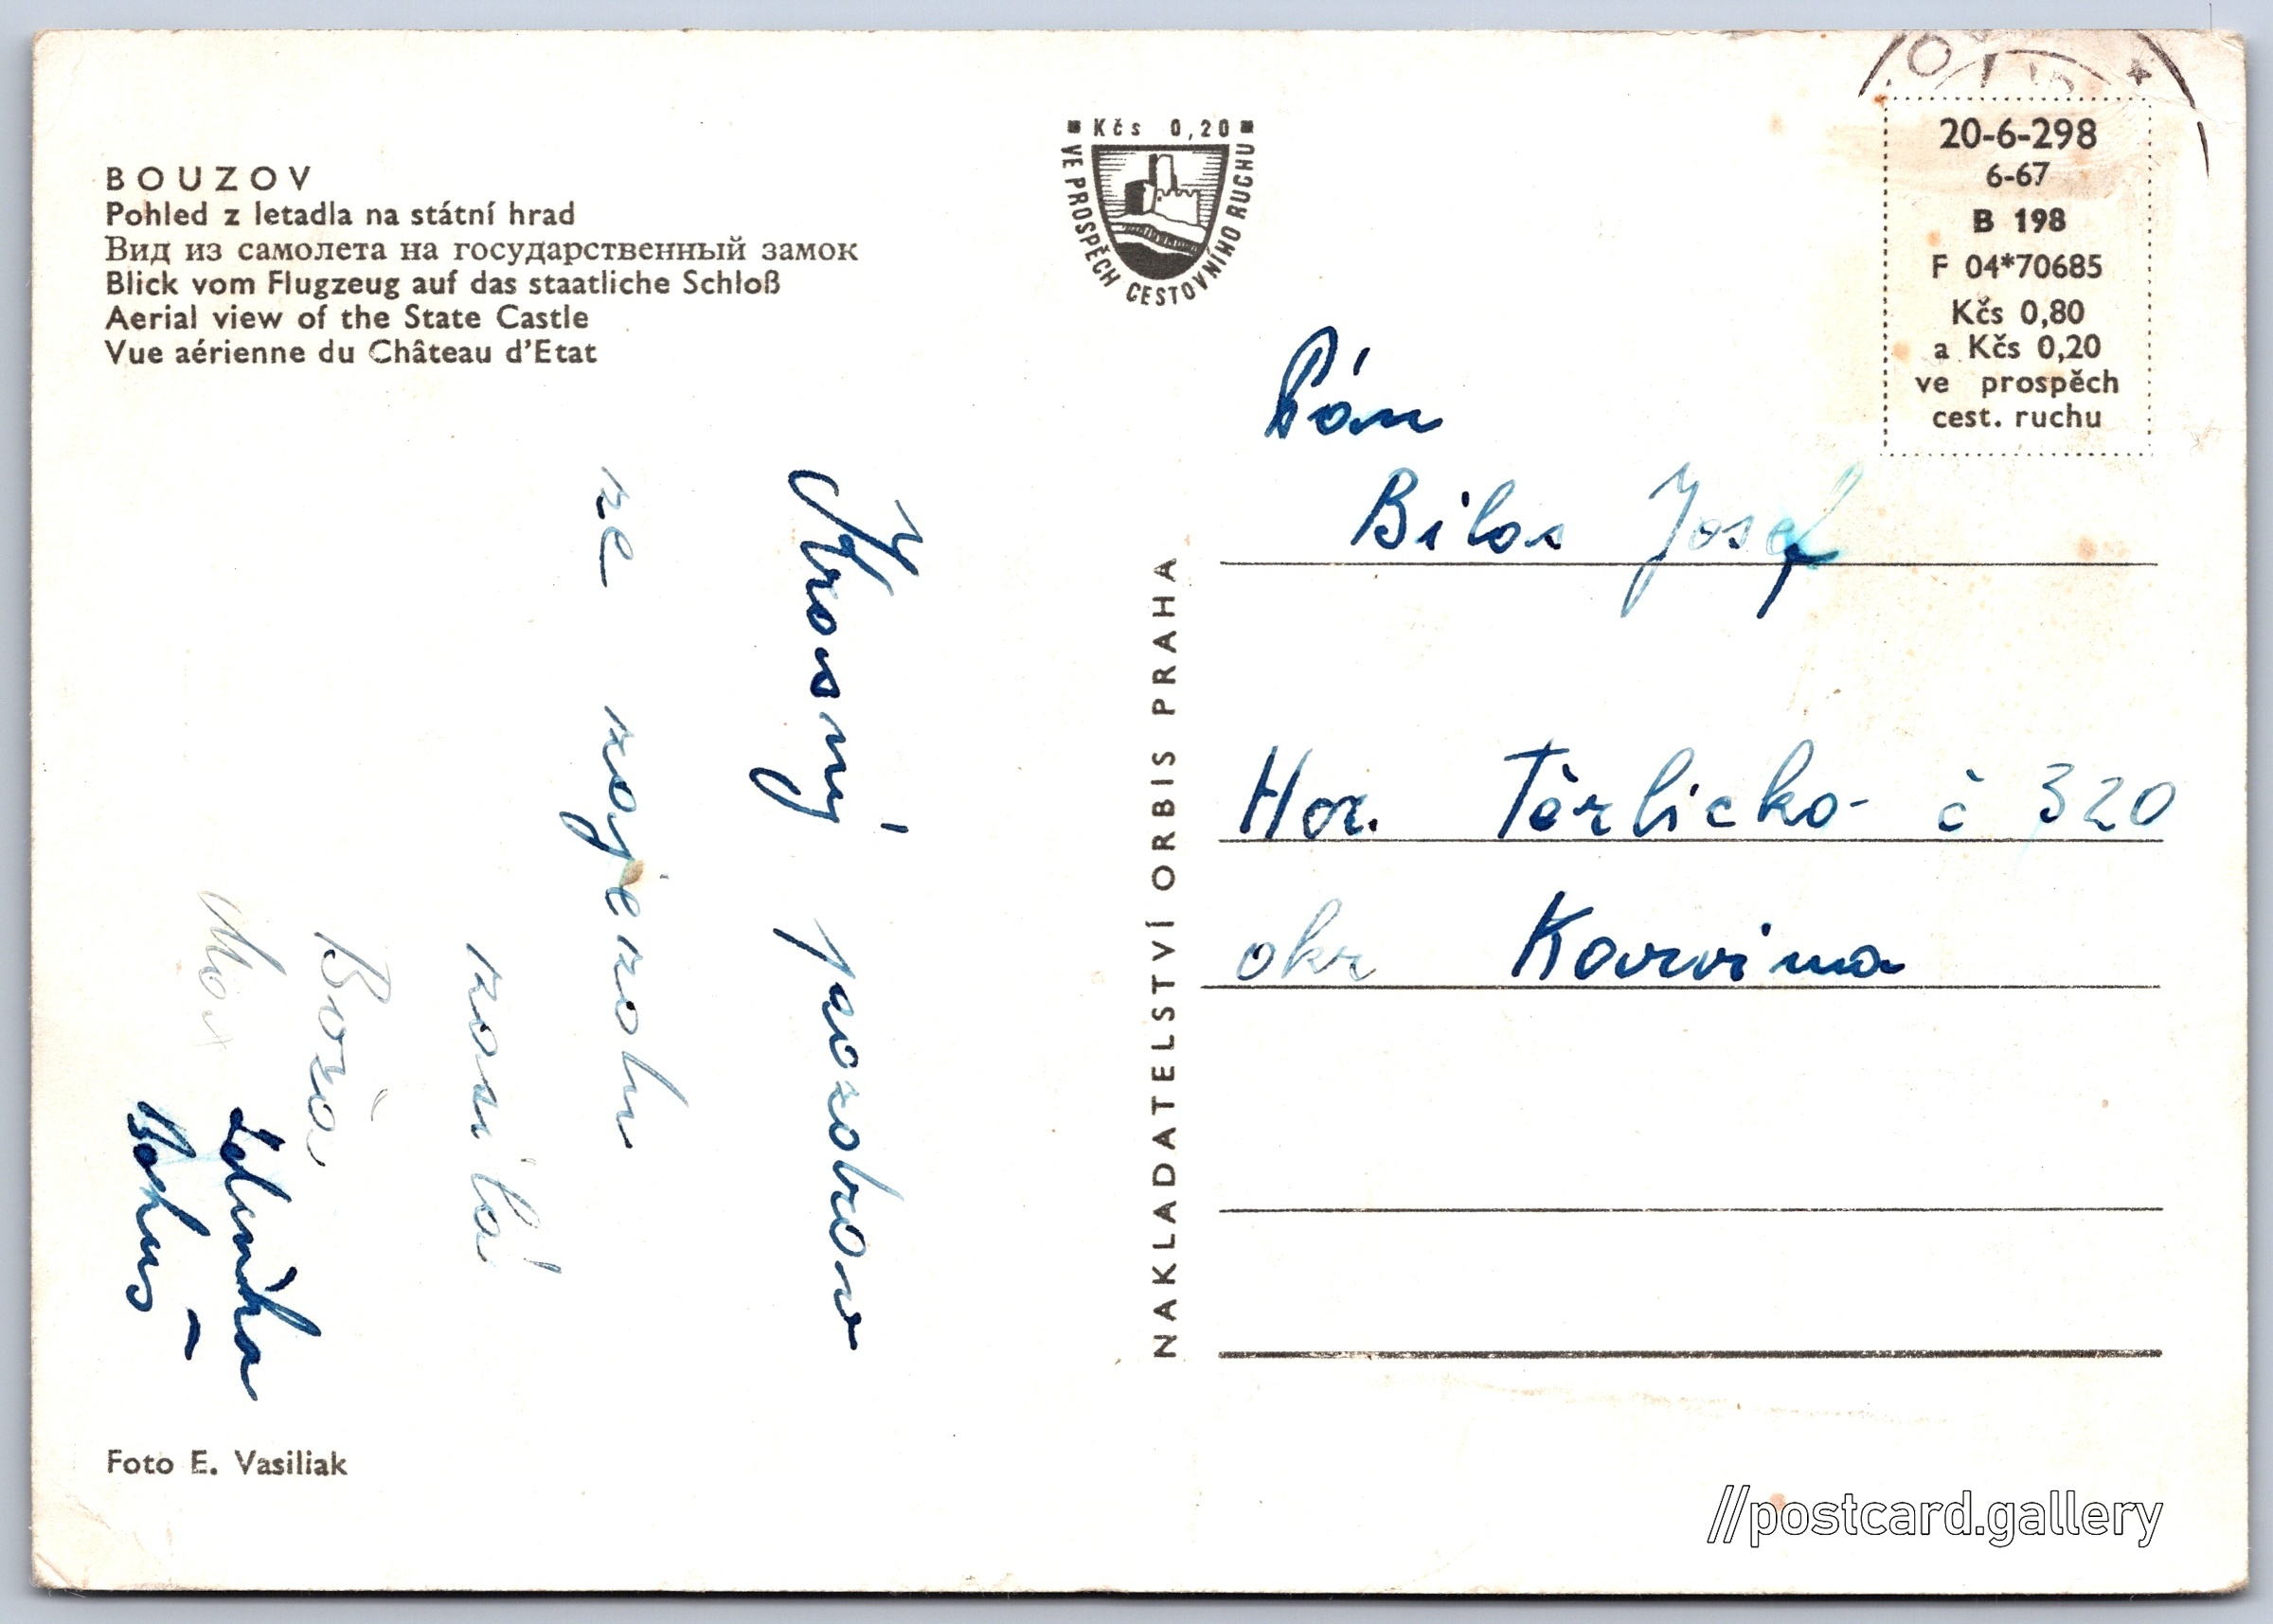 BOUZOV
Pohled z letadla na státní hrad
Вид из самолета на государственный замок
Blick vom Flugzeug auf das staatliche Schloß
Aerial view of the State Castle
Vue aérienne du Château d'Etat
Krásný pozdrav
ze zájezdu
zasílá
Boža
Bohuš
Foto E. Vasiliak
Kčs 0,20
VE PROSPĚCH CESTOVNÍHO RUCHU
NAKLADATELSTVÍ ORBIS PRAHA
20-6-298
6-67
B 198
F 04*70685
Kčs 0,80
a Kčs 0,20
ve prospěch
cest. ruchu
Pán
Josef
Hor. Těrlicko č 320
okr Karvina
//postcard.gallery